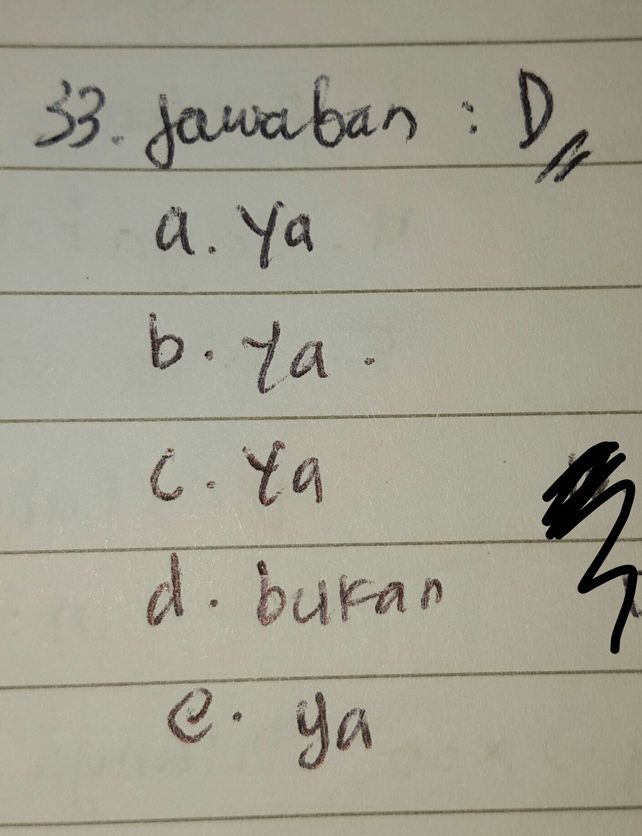 33. Jawaban : D
a. Ya
b. Ya.
c. Ya
d. bukan
e. ya